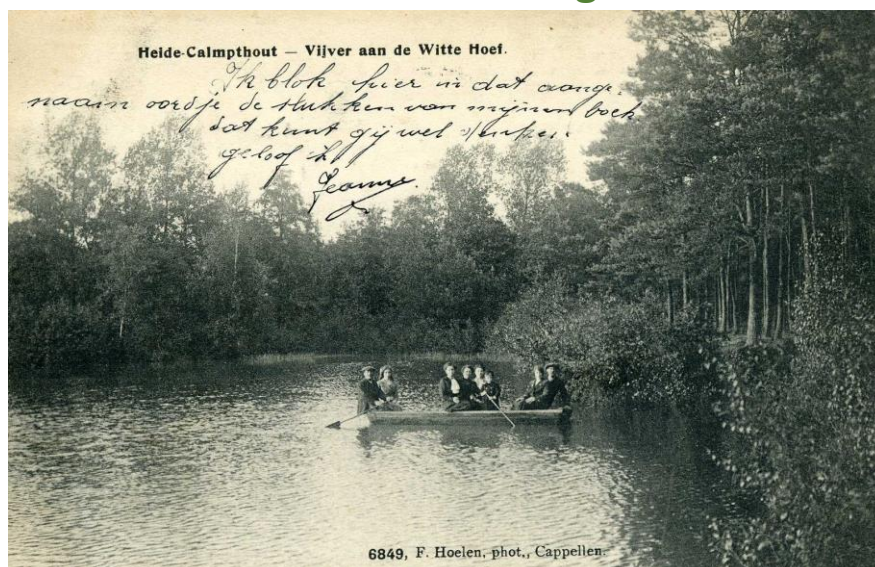 Heide-Calmpthout — Vijver aan de Witte Hoef.
Ik blok hier in dat aange-
naam oordje de stukken van mijnen boek
dat kunt gij wel denken.
geloof ik
Jeanne.
6849, F. Hoelen, phot., Cappellen.